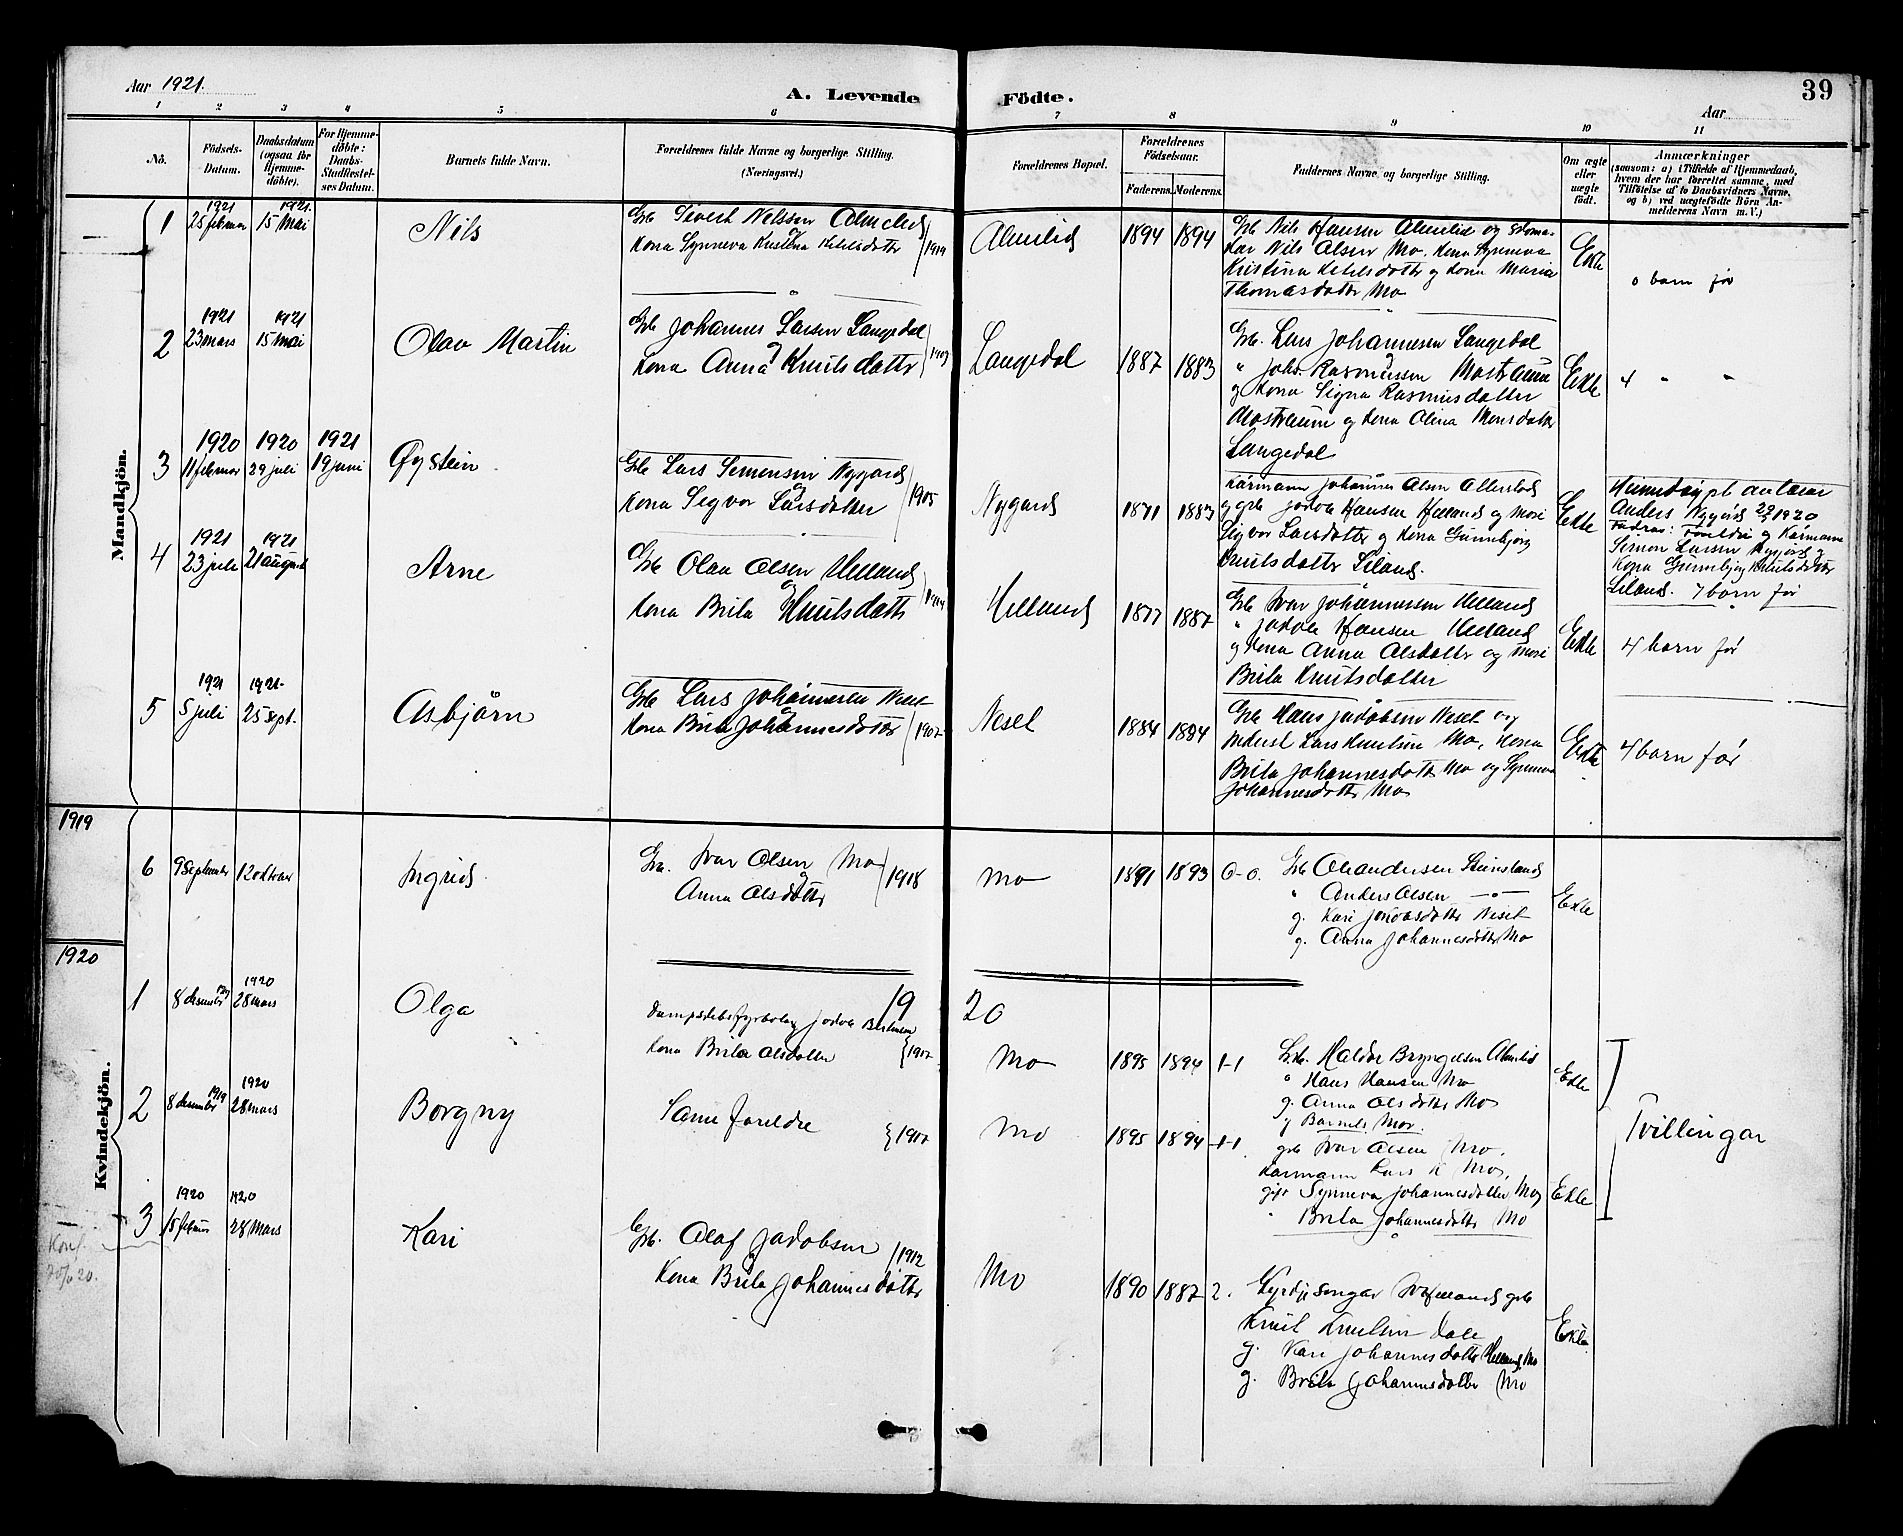 Aar 1921.
A. Levende Födte.
39
Aar
1 2 3 4 5 6 7 8 9 10 11
No.
Födsels-Datum.
Daabsdatum (ogsaa for Hjemme-döbte).
For Hjemme-döbte: Daabs-Stadfæstel-ses Datum.
Barnets fulde Navn.
Forældrenes fulde Navne og borgerlige Stilling.
(Næringsvei.)
Forældrenes Bopæl.
Forældrenes Födselsaar.
Faderens. Moderens.
Faddernes Navne og borgerlige Stilling.
Om ægte eller uægte født.
Anmærkninger
(saasom: a) i Tilfælde af Hjemmedaab, hvem der har forrettet samme, med Tilföielse af to Daabsvidners Navne, og b) ved uægtefödte Börn An-melderens Navn m. V.)
Mandkjön.
1 1921 25 februar 1921 15 Mai Nils
Gb. Sivert Nelssen Almelid
og
Kona Synneva Kristina Ketelsdotter 1919
Almelid 1894 1894
Gb. Nils Hansen Almelid og
kar Nils Olsen Mo. Kona Synneva
Kristina Ketelsdotter og kona Maria
Thomasdotter Mo
Ekte
0 barn før
2 1921 23 mars 1921 15 mai Olav Martin
Gb. Johannes Larsen Langedal
og
Kona Anna Knutsdotter 1909
Langedal 1887 1883
Gb. Lars Johannesen Langedal
" Johs. Rasmussen Mostraum
og Kona Signa Rasmusdotter
Mostraum og kona Alina Monsdotter
Langedal
Ekte
4 " "
3 1920 11 februar 1920 29 juli 1921 19 juni Øystein
Gb. Lars Simonsen Nygard
og
Kona Sigvor Larsdotter 1905
Nygard 1871 1883
Kårmann Johannes Olsen
og gb. Jakob Hansen Helland og mori
Sigvor Larsdotter og kona Gunnbjørg
Knutsdotter Liland.
Ekte
Heimedøypt av
Anders Nygård 29/7 1920
Fadrar: Foreldri og Kårmann
Simon Larsen Nygard og
Kona Gunnbjørg Knutsdotter
Liland. 7 born før
4 1921 23 juli 1921 21 august Arne
Gb. Olav Olsen Helland
og
Kona Brita Knutsdotter 1914
Helland 1877 1887
Gb. Ivar Johannessen Helland
" Jakob Hansen Helland
og kona Anna Olsdotter og mori
Brita Knutsdotter
Ekte
4 born før
5 1921 5 juli 1921 25 sept. Asbjörn
Gb. Lars Johannesen Neset
og
Kona Brita Johannesdotter 1907
Neset 1884 1884
Gb. Hans Jakobsen Neset og
inderst Lars Knutsen Mo, Kona
Brita Johannesdotter Mo og Synneva
Johannesdotter Mo
Ekte
4 born før
1919
6 9 September 12 oktober Ingrid
Gb. Ivar Olsen Mo
og
Anna Olsdotter 1918
Mo 1891 1893 0-0.
Gb. Ola Andersen Steinsland
" Anders Olsen —"—
g. Kari Jakobsdotter Neset
g. Anna Johannesdotter Mo
Ekte
1920
1920
Kvindekjön.
1 8 desember 1919 1920 28 mars Olga
Dampskibsfyrbøter Jakob
Kona Brita Olsdotter 1917
Mo 1895 1894 1-1
Gb. Haldor Bryngelsen Almelid
" Hans Hansen Mo
g. Anna Olsdotter Mo
og Barnets Mor.
Ekte
Tvillingar
2 8 desember 1919 1920 28 mars Borgny
Same foreldre 1917
Mo 1895 1894 1-1
gb Ivar Olsen Mo.
Kårmann Lars K Mo,
gift Synneva Johannesdotter Mo
" Brita Johannesdotter Mo
Ekte
3 1920 15 februar 1920 28 Mars Kari
Gb. Olaf Jakobsen
og
Kona Brita Johannesdotter 1912
Mo 1890 1887 2.
Kyrkjesongar Helland gb
Knut Knutsen Dale
g. Kari Johannesdotter Helland Mo
g. Brita Johannesdotter Mo
Ekte
Konf.